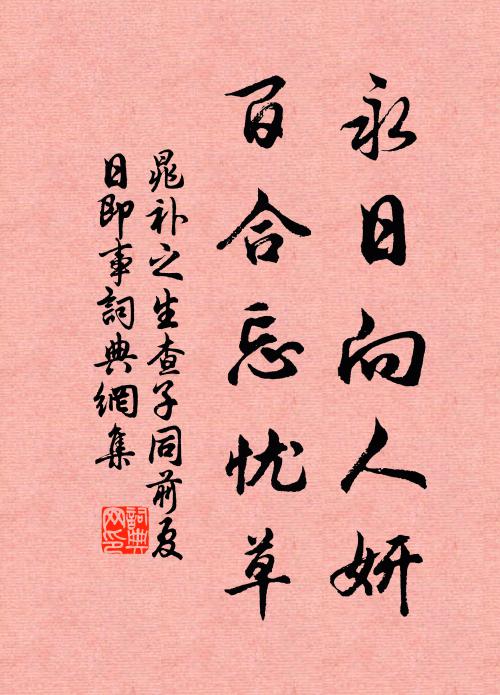 永日向人妍
百合忘忧草
晁补之生查子同前夏
日即事詞典網集
詞典
网印